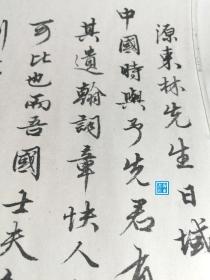 源東林先生日域
中國時與予先君
其遺翰詞章快人
可比也而吾國士夫